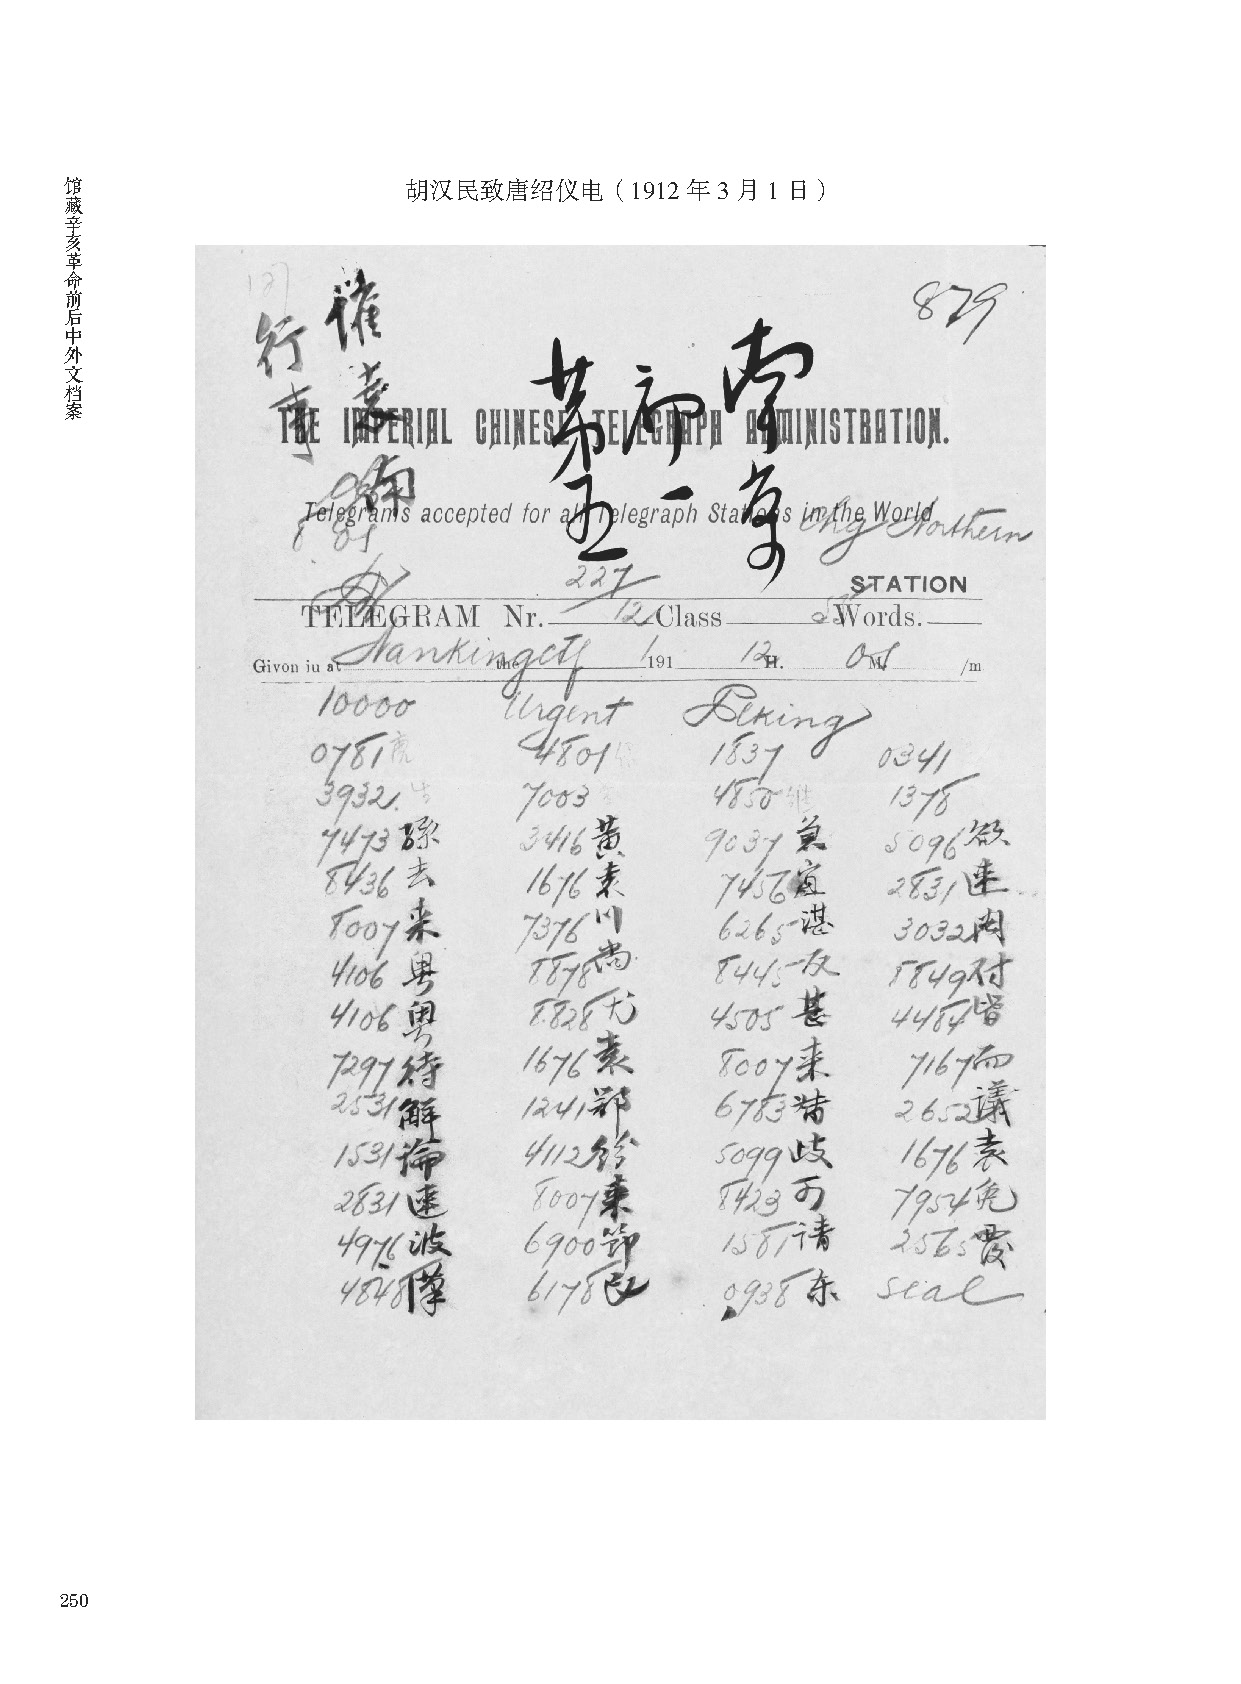 馆藏辛亥革命前后中外文档案
胡汉民致唐绍仪电（1912年3月1日）
879
催袁南
行事
南京
部一
第五
THE IMPERIAL CHINESE TELEGRAPH ADMINISTRATION.
Telegrams accepted for all Telegraph Stations in the World
Northern
STATION
227
TELEGRAM Nr. 12 Class Words.
Givon iu at Nanking the 1 191 12 H. 05 M. /m
10000 Urgent Peking
0781 4801 1837 0341
3932 7003 4850 1378
7473 孫 3416 黃 9037 兼 5096 欲
8436 去 1676 袁 7456 宜 2831 速
8007 来 7376 川 6265 湛 3032 内
4106 粤 8878 尚 8445 反 8849 付
4106 粤 8828 尤 4505 甚 4484 皆
7297 待 1676 袁 8007 来 7167 而
2531 解 1241 鄂 6783 猎 2652 議
1531 論 4112 紛 5099 歧 1676 袁
2831 速 8007 来 8423 可 7954 免
4976 波 6900 節 1581 请 2565 覆
4848 漢 6178 民 0938 东 seal
250